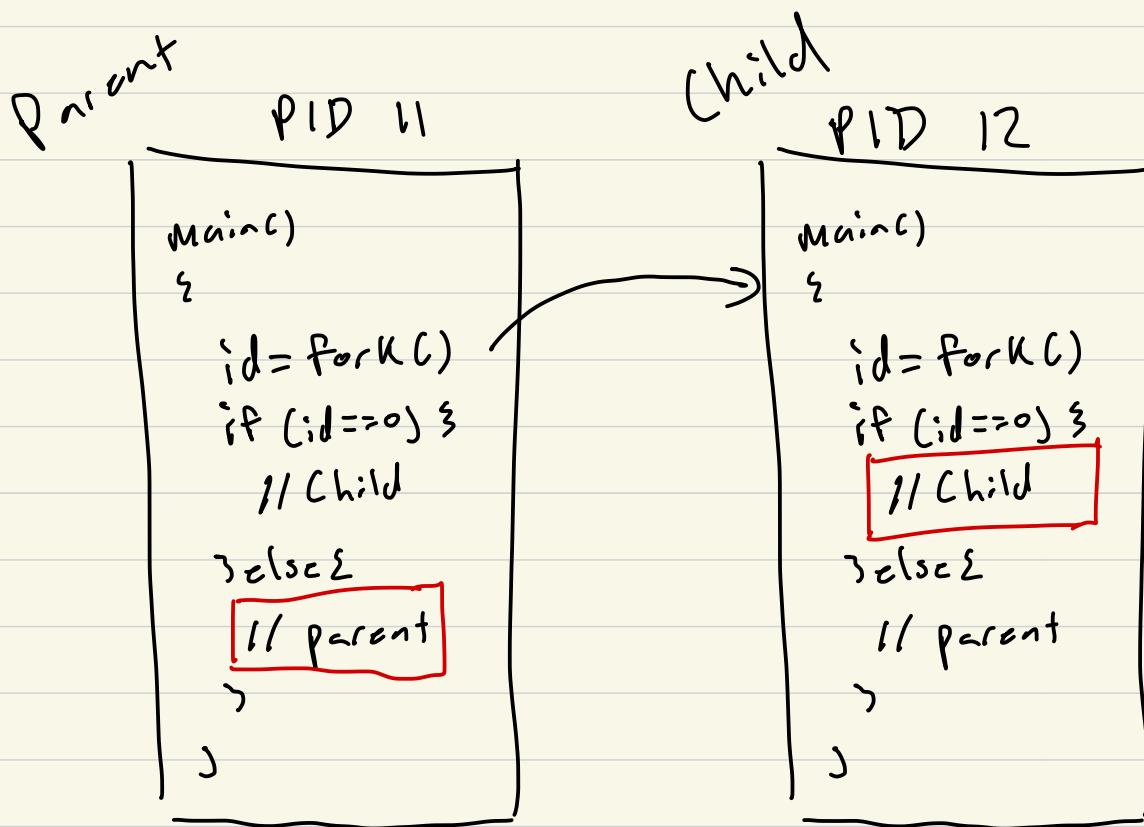 Parent
PID 11
main()
{
id=fork()
if (id==0) {
// Child
}else{
// parent
}
}
Child
PID 12
main()
{
id=fork()
if (id==0) {
// Child
}else{
// parent
}
}